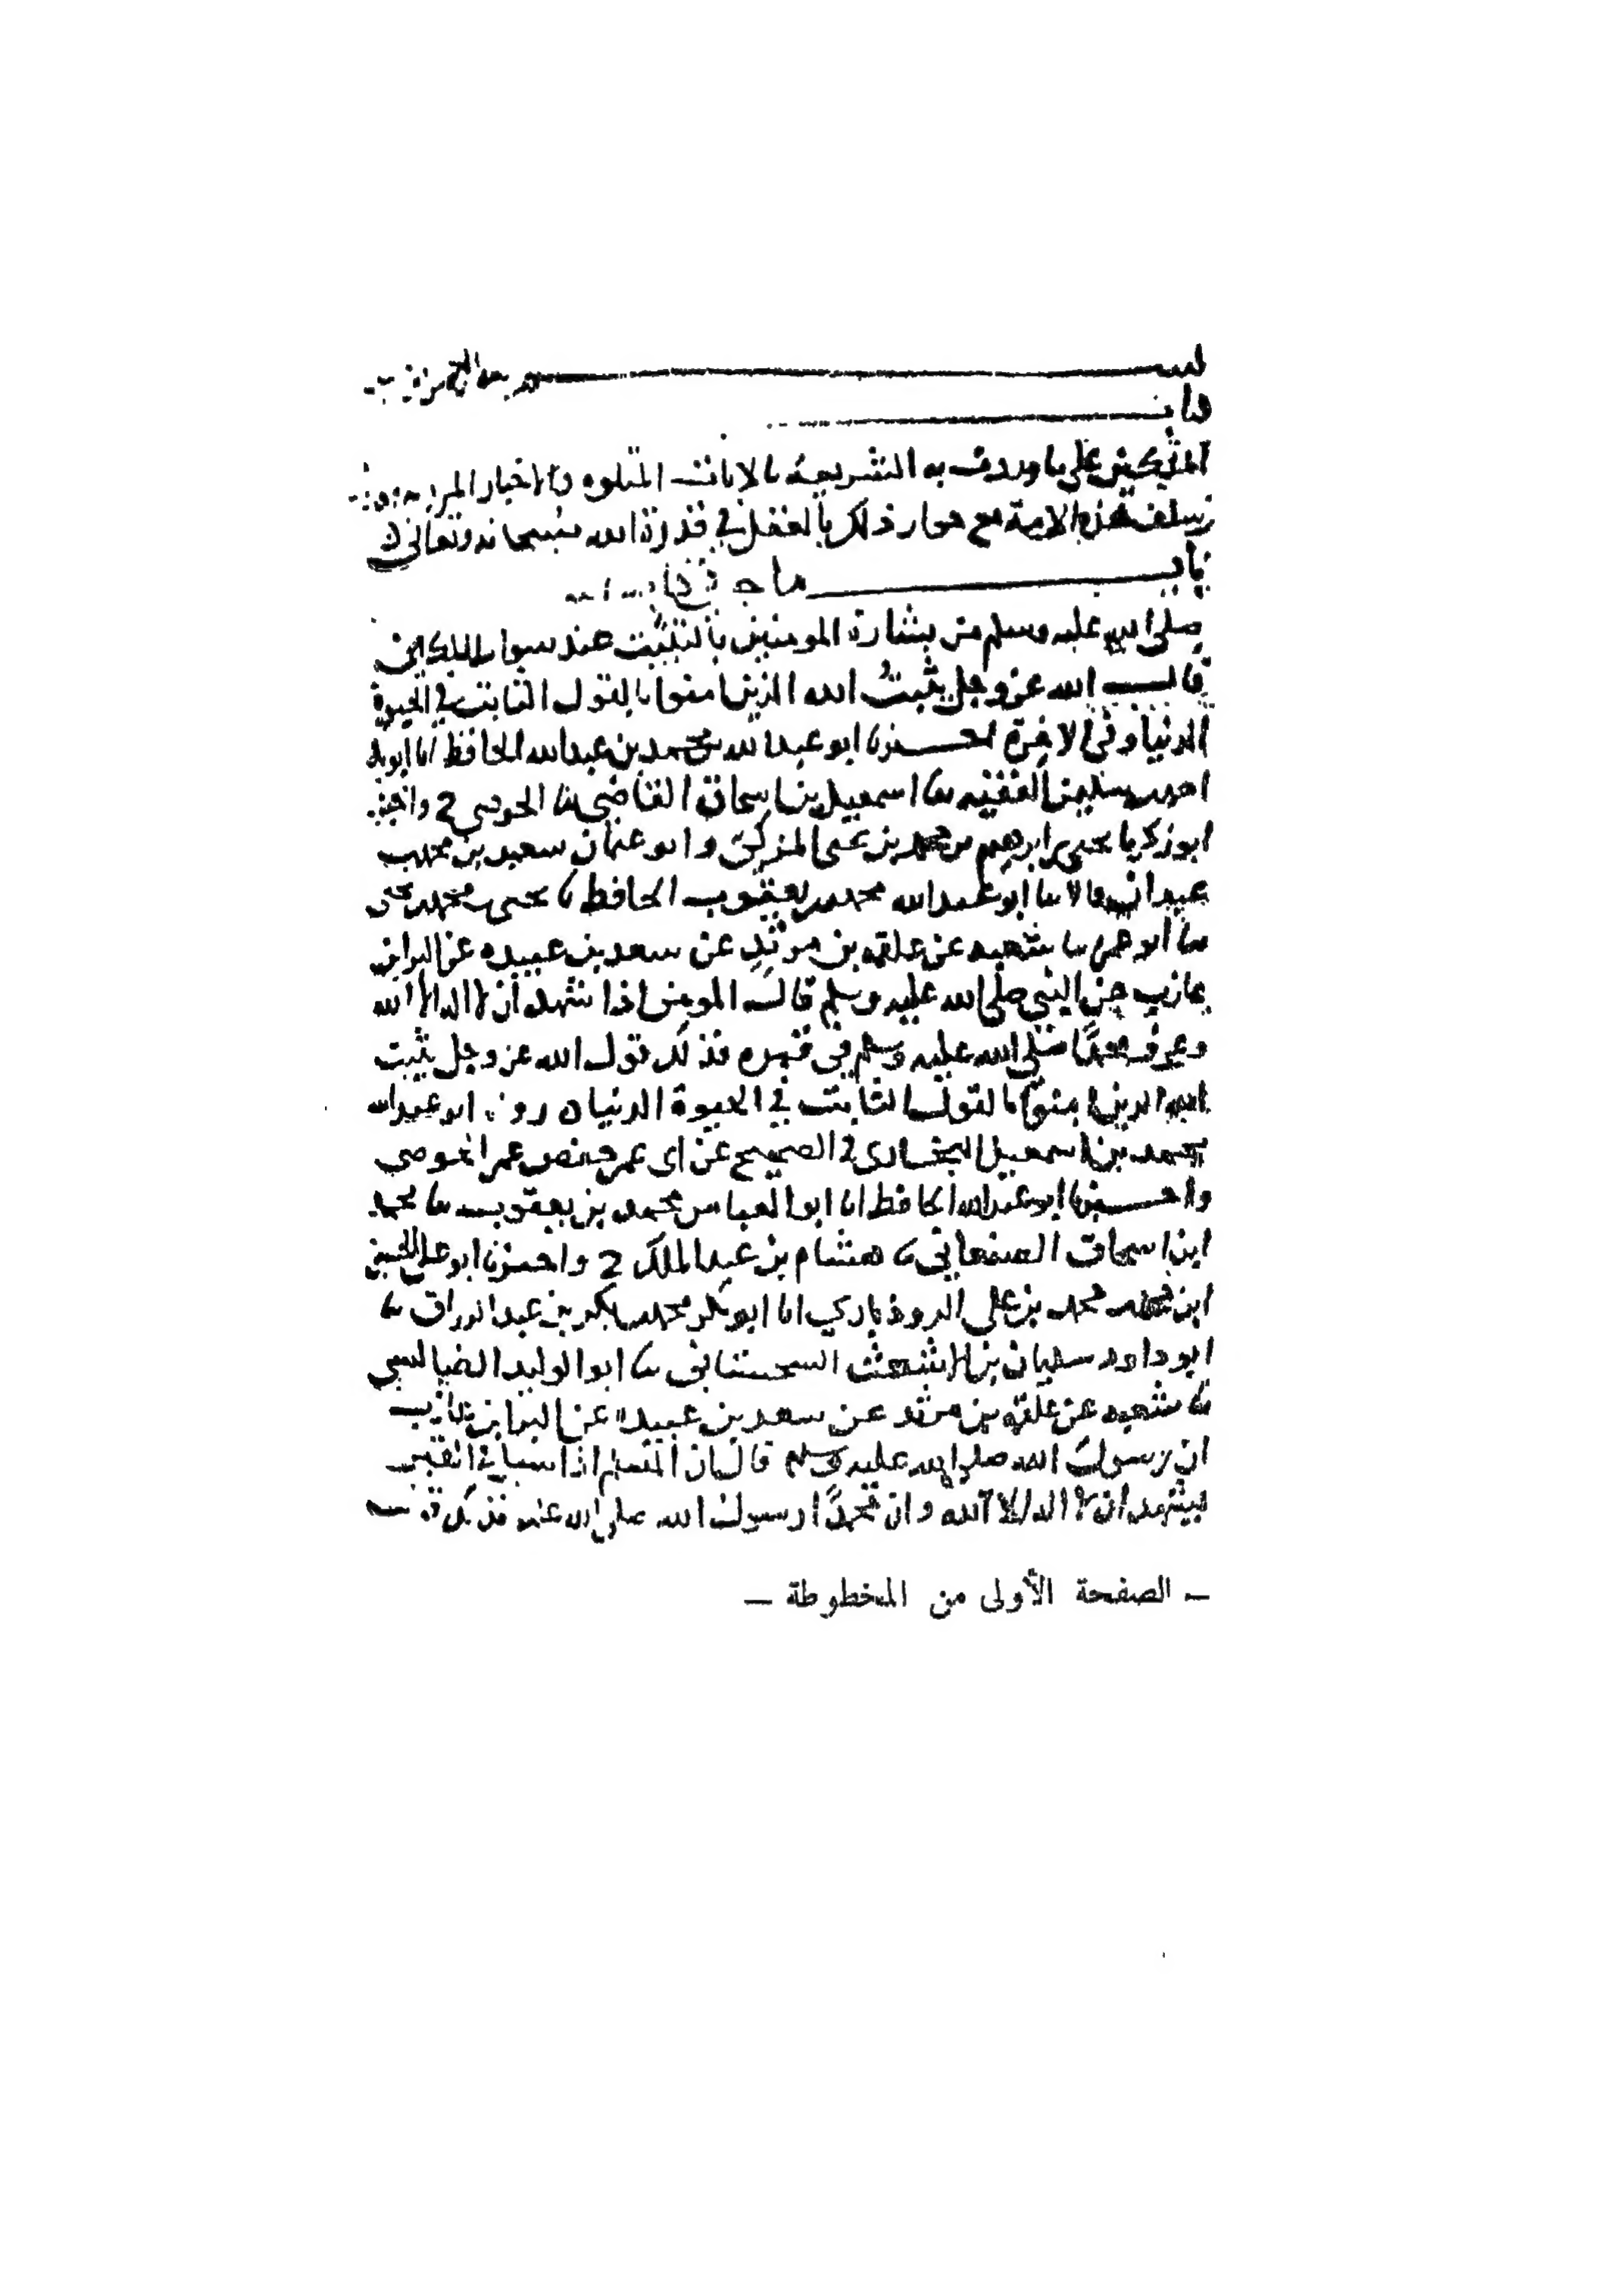 بسم الله الرحمن
باب
الملكين على ما وردت به الشريعة بالايات المتلوه والاخبار المرويه
سلف هذه الامة مع جواز ذلك بالعقل في قدرة الله سبحانه وتعالى
باب ما جا
صلى الله عليه وسلم من بشارة المومنين بالتثبيت عند سوال الملكين
قال الله عز وجل يثبتُ الله الذين امنوا بالقول الثابت في الحيوة
الدنيا وفي الاخرة اخبرنا ابو عبد الله محمد بن عبد الله الحافظ انا ابو بكر
احمد بن سليمن الفقيه ثنا اسمعيل بن اسحاق القاضي ثنا الحوضي ح واخبرنا
ابو زكريا يحيى بن ابرهيم بن محمد بن يحيى المزكي وابو عثمان سعيد بن محمد بن
عبدان قالا ثنا ابو عبد الله محمد بن يعقوب الحافظ ثنا يحيى بن محمد بن يحيى
ثنا ابو عمر ثنا شعبه عن علقمه بن مرثد عن سعد بن عبيده عن البرا بن
عازب عن النبي صلى الله عليه وسلم قال المومن اذا شهد ان لا اله الا الله
وعرف محمدًا صلى الله عليه وسلم في قبره فذلك قول الله عز وجل يثبت
الله الذين امنوا بالقول الثابت في الحيوة الدنيا رواه ابو عبد الله
محمد بن اسمعيل البخاري في الصحيح عن ابي عمر حفص بن عمر الحوضي
واخبرنا ابو عبد الله الحافظ انا ابو العباس محمد بن يعقوب ثنا محمد
ابن اسحاق الصنعاني ثنا هشام بن عبد الملك ح واخبرنا ابو علي الحسين
ابن محمد بن محمد بن علي الروذباري انا ابو بكر محمد بن بكر بن عبد الرزاق ثنا
ابو داود سليمان بن الاشعث السجستاني ثنا ابو الوليد الطيالسي
ثنا شعبه عن علقمه بن مرثد عن سعد بن عبيده عن البرا بن عازب
ان رسول الله صلى الله عليه وسلم قال ان المسلم اذا سيل في القبر
فيشهد ان لا اله الا الله وان محمدًا رسول الله صلى الله عليه فذلك قول
— الصفحة الأولى من المخطوطة —